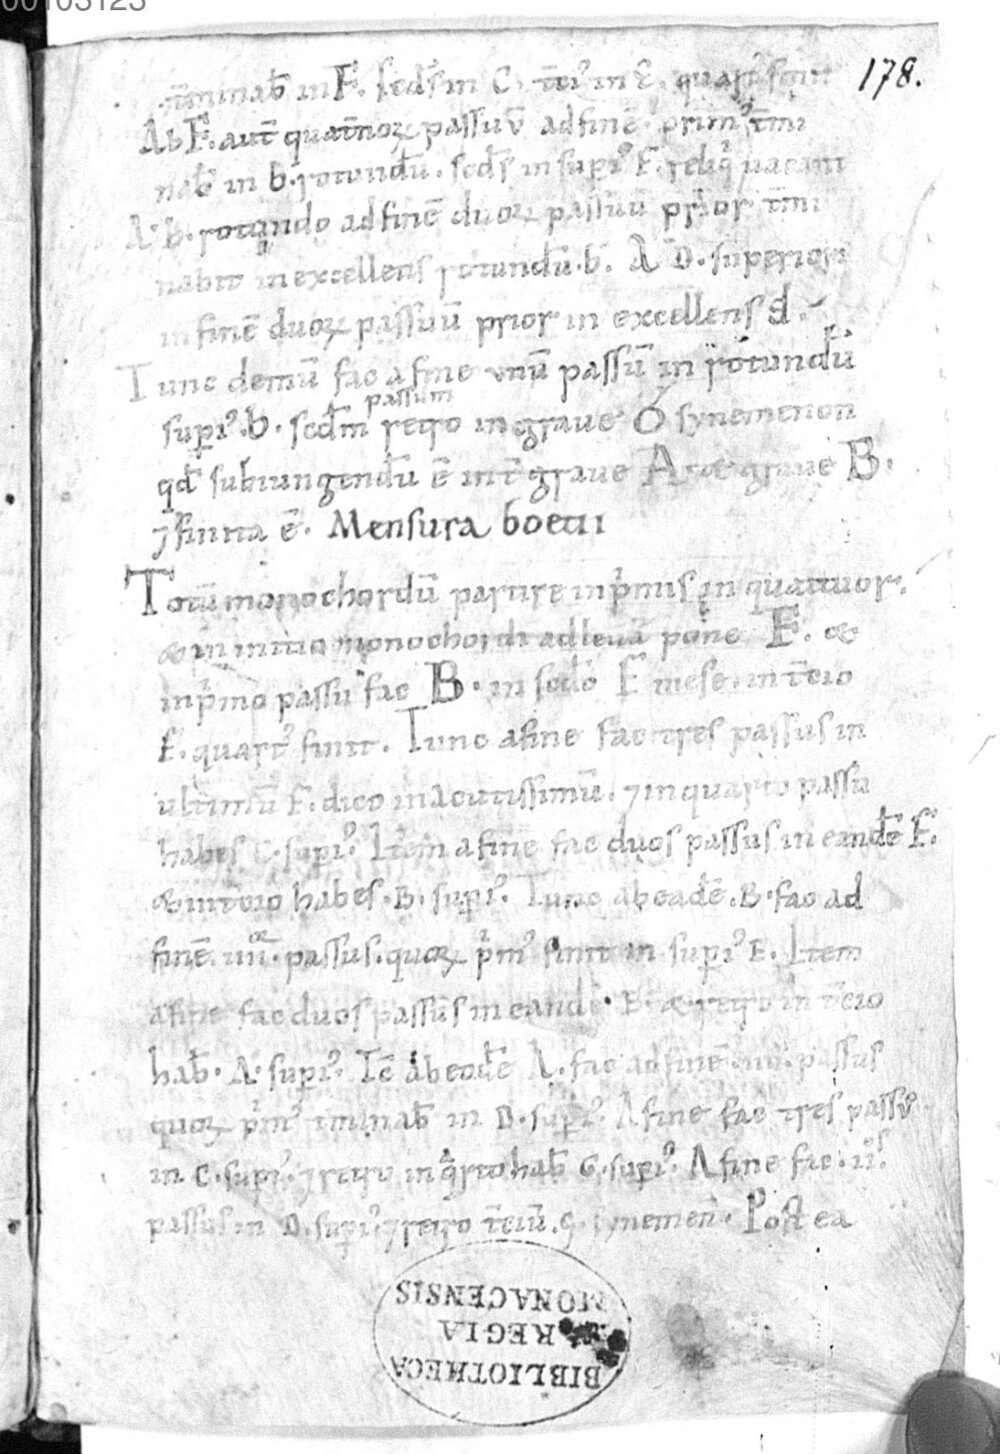 00103123
178.
t̄minab̄ in F. sed̄s in C. t̄ci⁹ in E. quart⁹ finit
Ab F. aut̄ quat̄noꝝ passuū ad finē prim⁹ t̄mi
nab̄ in b. rotundū. sed̄s in supi⁹ F. reliq̄ uacant
A b. rotundo ad finē duoꝝ passuū prior t̄mi
nabit in excellens rotundū. b. A D. superiori
in finē duoꝝ passuū prior in excellens d.
Tunc demū fac a fine unū passū in rotundū
supi⁹. b. secd̄m passum retro in graue G synemenon
qd̄ subiungendū ē int̄ graue A. & graue B.
⁊ finita ē. Mensura boetii
Totū monochordū partire in p̄mis in quattuor.
& in initio monochordi ad leuā pone F. &
in p̄mo passu fac B. in secd̄o F mese. in t̄cio
F. quart⁹ finit. Tunc a fine fac tres passus in
ultimū F. dico in acutissimū. ⁊ in quarto passu
habes C. supi⁹. Item a fine fac duos passus in eandē F.
& in tercio habes. B. supi⁹. Tunc ab eadē. B. fac ad
finē. iiii. passus. quoꝝ p̄m⁹ finit in supi⁹ E. Item
a fine fac duos passus in eandē. E. & retro in t̄cio
hab̄. A. supi⁹. Tc̄ ab eodē A. fac ad finē. iiii. passus
quoꝝ p̄m⁹ t̄minab̄ in D. supi⁹. A fine fac tres passus
in. C. supi⁹. ⁊ retro in q̄rto hab̄ G. supi⁹. A fine fac. ii⁹.
passus in D. supi⁹. ⁊ retro t̄ciū. G. synemen̄. Postea
BIBLIOTHECA
REGIA
MONACENSIS